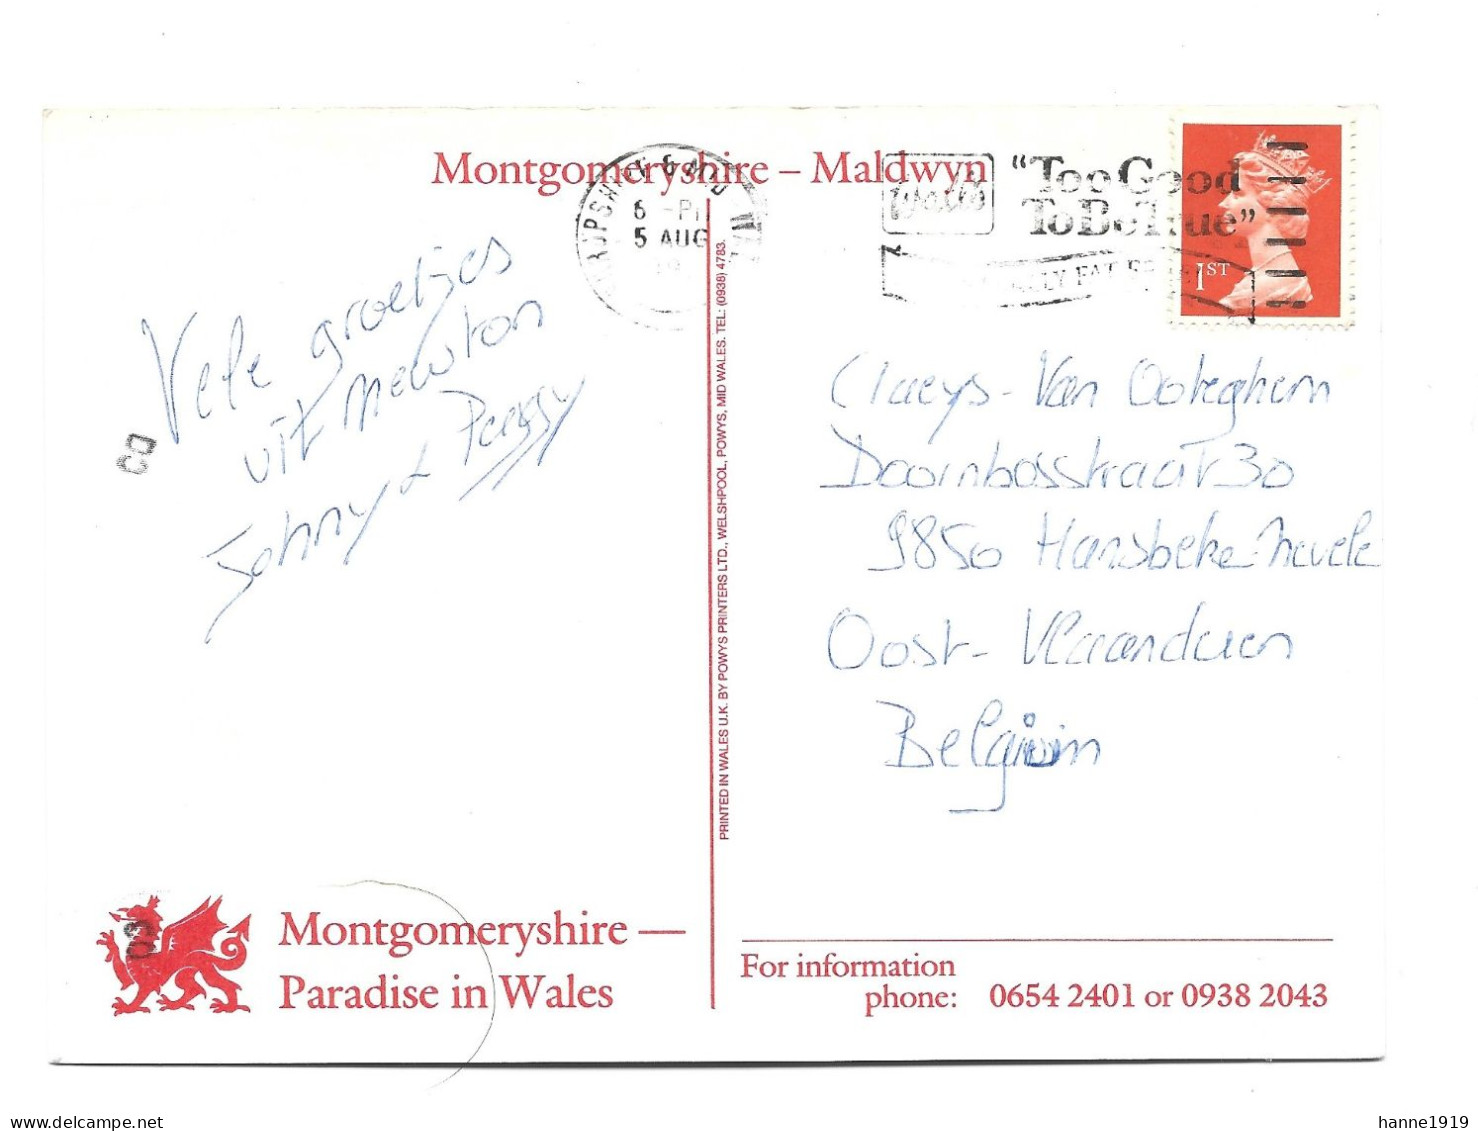 Montgomeryshire – Maldwyn
6 - PM
5 AUG
"Too Good
To Be True"
1ST
Vele groetjes
uit Newton
Johnny & Peggy
Claeys - Van Ooteghem
Doornbosstraat 30
9850 Hansbeke-Nevele
Oost-Vlaanderen
Belgium
PRINTED IN WALES U.K. BY POWYS PRINTERS LTD., WELSHPOOL, POWYS, MID WALES. TEL: (0938) 4783.
Montgomeryshire —
Paradise in Wales
For information
phone: 0654 2401 or 0938 2043
hanne1919
delcampe.net